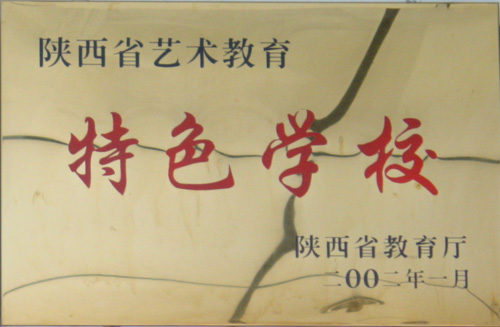 陕西省艺术教育
特色学校
陕西省教育厅
二00二年一月